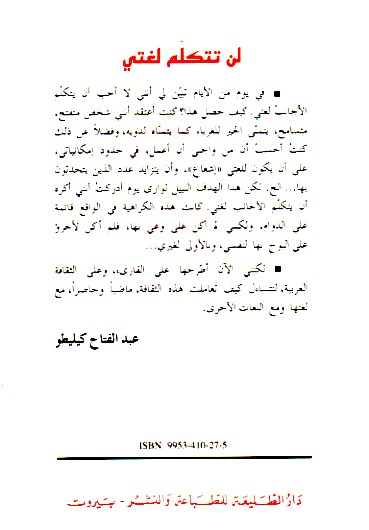 لن تتكلم لغتي
■ في يوم من الأيام تبيّن لي أنني لا أحب أن يتكلّم
الأجانب لغتي. كيف حصل هذا؟ كنت أعتقد أنني شخص متفتح،
متسامح، يتمنّى الخير للغرباء كما يتمنّاه لذويه. وفضلاً عن ذلك
كنت أحسب أن من واجبي أن أعمل، في حدود إمكانياتي،
على أن يكون للغتي «إشعاع»، وأن يتزايد عدد الذين يتحدثون
بها... الخ. لكن هذا الهدف النبيل توارى يوم أدركت أنني أكره
أن يتكلم الأجانب لغتي. كانت هذه الكراهية في الواقع قائمة
على الدوام، ولكنني لم أكن على وعي بها، فلم أكن لأجرؤ
على البوح بها لنفسي، وبالأولى لغيري...
■ لكنني الآن أطرحها على القارىء، وعلى الثقافة
العربية، لنتساءل كيف تعاملت هذه الثقافة، ماضياً وحاضراً، مع
لغتها ومع اللغات الأخرى.
عبد الفتاح كيليطو
ISBN 9953-410-27-5
دار الطليعة للطباعة والنشر - بيروت